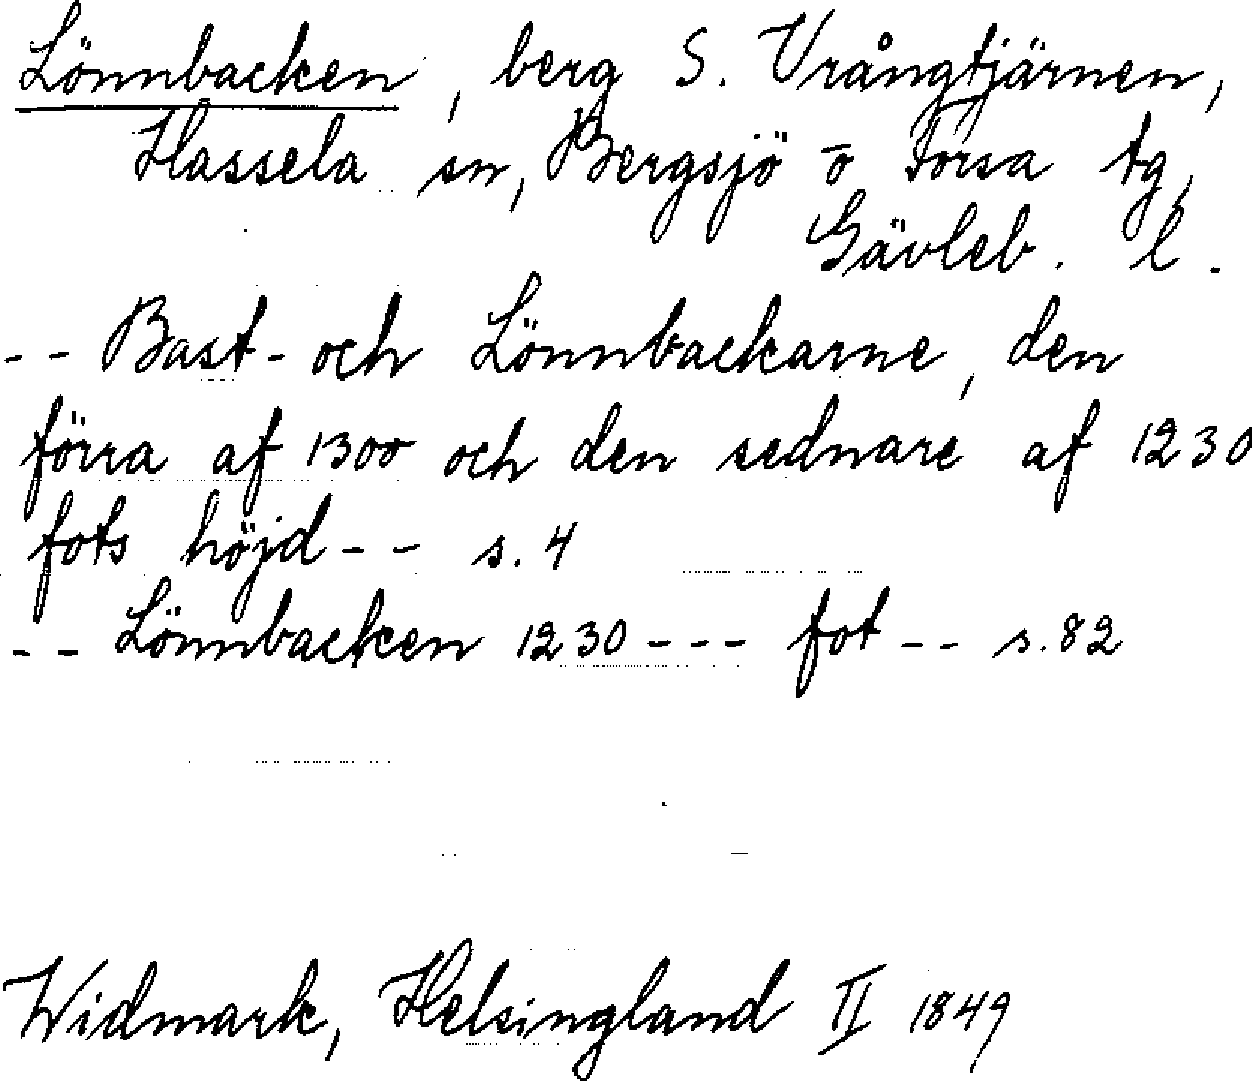 Lönnbacken, berg S. Vrångtjärnen,
Hassela sn, Bergsjö o Forsa tg,
Gävleb. l.
-- Bast- och Lönnbackarne, den
förra af 1300 och den sednare af 1230
fots höjd -- s. 4
-- Lönnbacken 1230 --- fot -- s. 82
Widmark, Helsingland II 1849